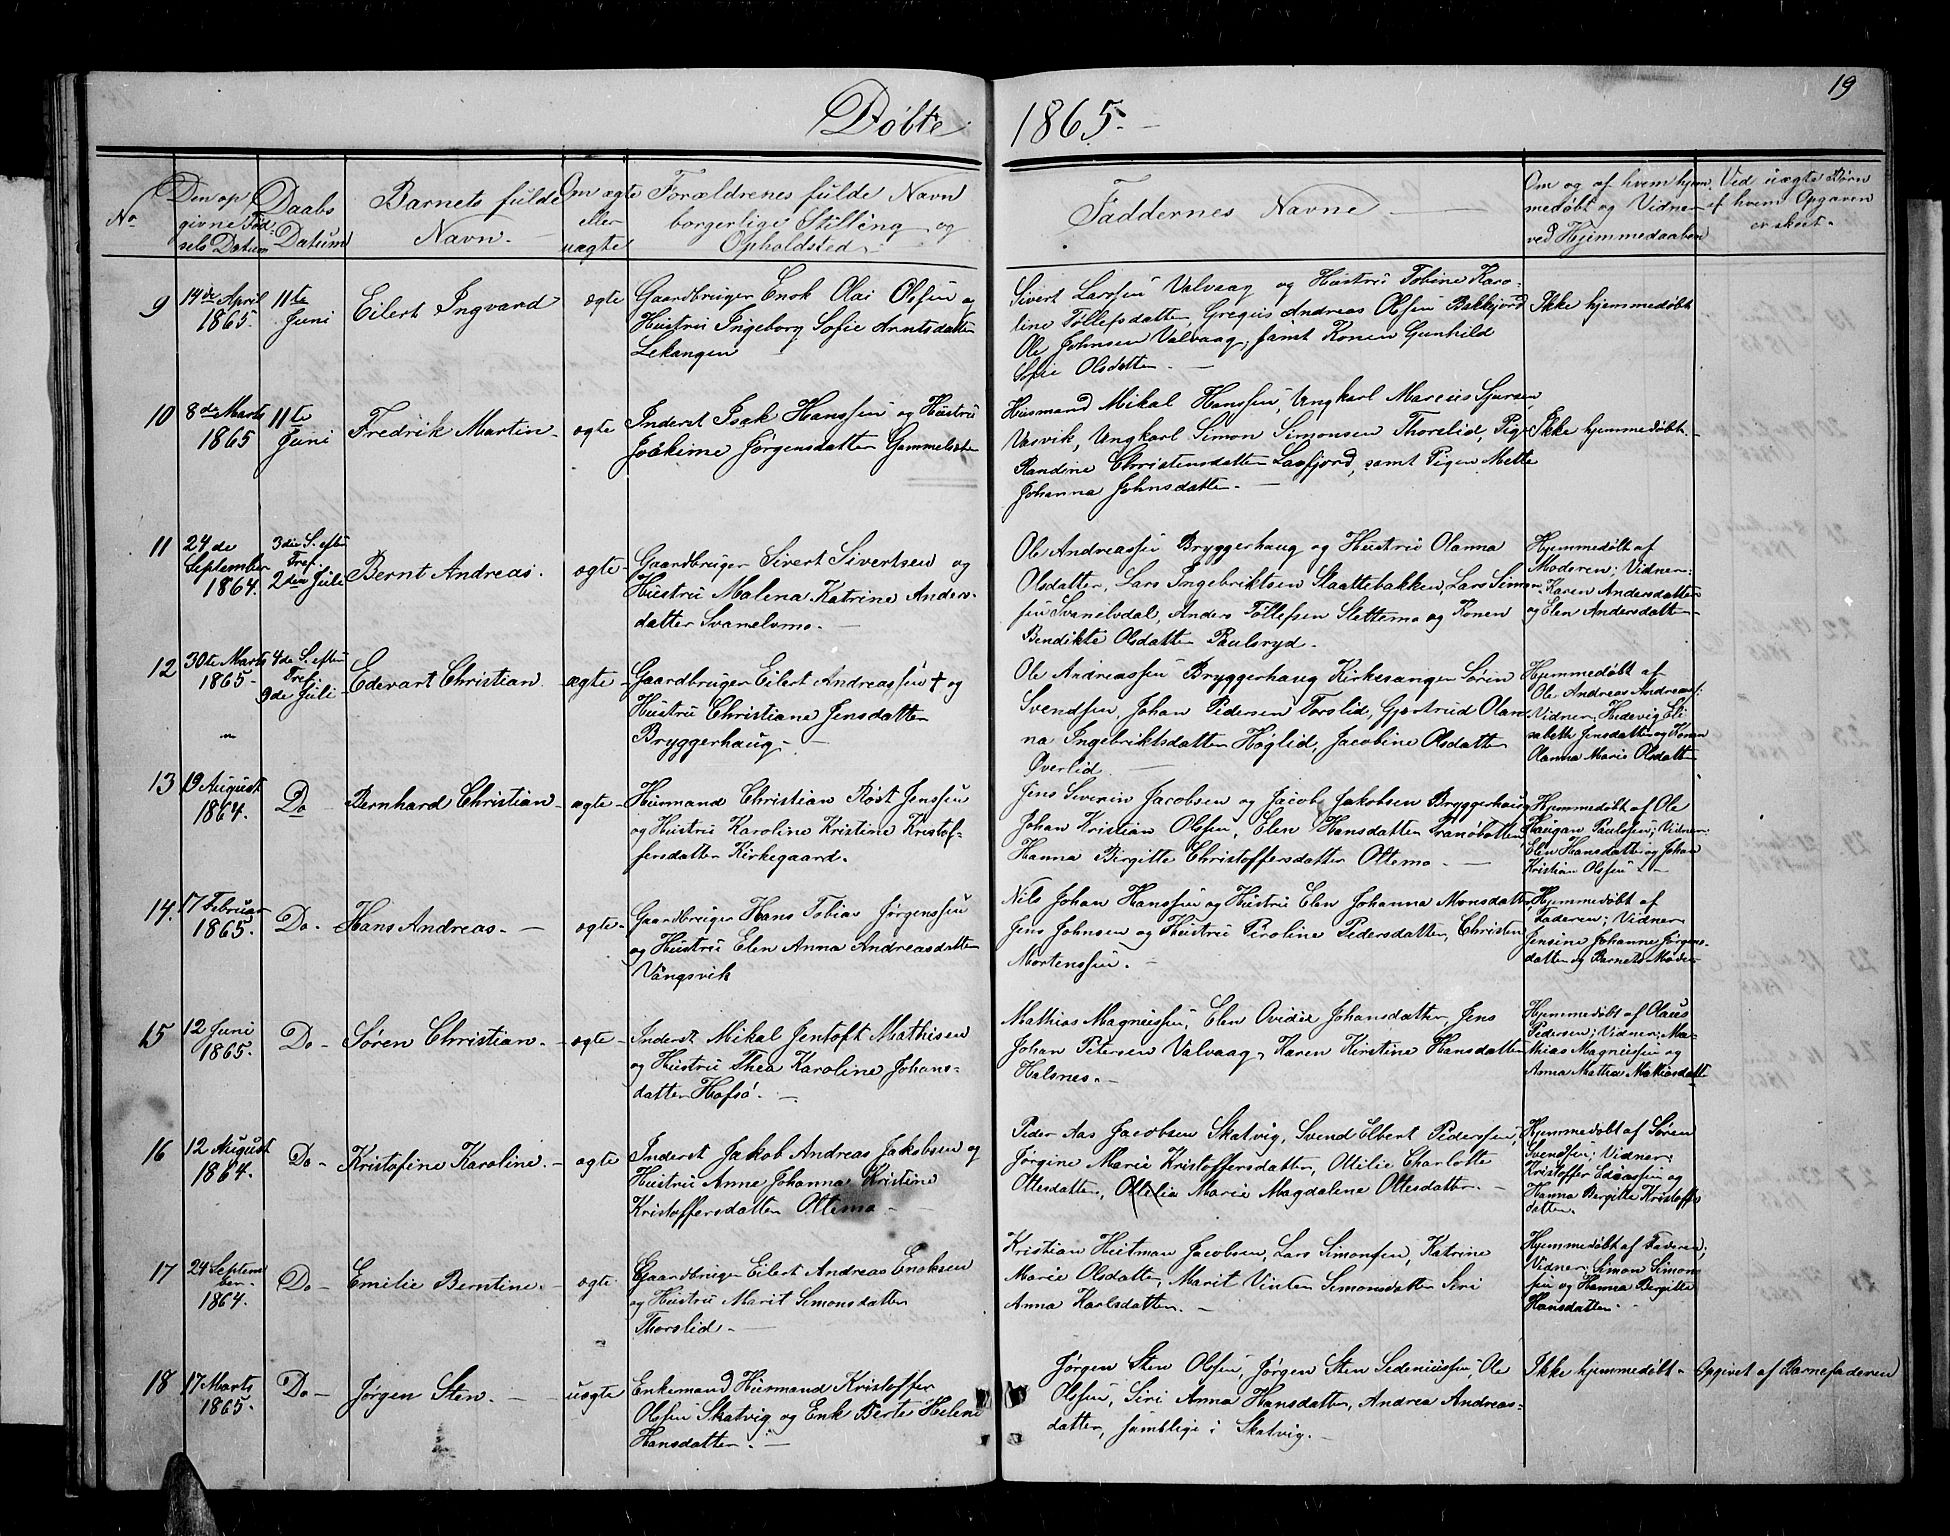 19
Døbte 1865.
No
Den opgivne Fødsels Datum
Daabs Datum
Barnets fulde Navn
Om ægte eller uægte
Forældrenes fulde Navn borgerlige Stilling og Opholdsted
Faddernes Navne
Om og af hvem hjemmedøbt og Vidner ved Hjemmedaaben
Ved uægte Børn af hvem Opgaven er skeet.
9
14de April
1865.
11te
Juni
Eilert Ingvard
ægte
Gaardbruger Enok Olai Olssen og
Hustru Ingeborg Sofie Arntsdatter
Lekangen
Sivert Larssen Valvaag og Hustru Tobine Karo-
line Tollefsdatter, Gregus Andreas Olsen Bakkejord
Ole Johnsen Valvaag, samt Konen Gunhild
Sofie Olsdatter.
Ikke hjemmedøbt
10
8de Marts
1865
11te
Juni
Fredrik Martin
ægte
Inderst Isak Hanssen og Hustru
Joakime Jørgensdatter
Husmand Mikal Hanssen, Ungkarl Marcus Sjursen
Vasvik, Ungkarl Simon Simonsen Thorslid, Pige
Randine Christensdatter Laxfjord, samt Pigen Mette
Johanna Johnsdatter.
Ikke hjemmedøbt.
11
24de
September
1864.
3die S. efter
Tref.
2den Juli
Bernt Andreas.
ægte
Gaardbruger Sivert Sivertsen og
Hustru Malena Katrine Anders-
datter Svanelvmo.
Ole Andreassen Bryggerhaug og Hustru Olanna
Olsdatter, Lars Ingebriktsen Slaattebakken, Lars Simon-
sen Svanelvdal, Anders Tollefsen Slettemo og Konen
Bendikte Olsdatter Paulsryd.
Hjemmedøbt af
Moderen; Vidner:
Karen Andersdatter
og Elen Andersdatter
12
30te Marts
1865
4de S. efter
Tref.
9de Juli
Edevart Christian
ægte
Gaardbruger Eilert Andreassen † og
Hustru Christiane Jensdatter
Bryggerhaug.
Ole Andreassen Bryggerhaug Kirkesanger Søren
Svendsen, Johan Pedersen Torslid, Gjertrud Olan-
na Ingebriktsdatter Høglid, Jacobine Olsdatter
Øverlid.
Hjemmedøbt af
Ole Andreas Andreass:
Vidner: Hedevig Eli-
sabeth Jensdatter og Konen
Olanna Marie Olsdatter
13
19 August
1864.
Do
Bernhard Christian
ægte
Husmand Christian Røst Jenssen
og Hustru Karoline Kristine Kristof-
fersdatter Kirkegaard.
Jens Severin Jacobsen og Jacob Jakobsen Bryggerhaug
Johan Kristian Olssen, Elen Hansdatter Tranøbotten,
Hanna Birgitte Christoffersdatter Ottemo.
Hjemmedøbt af Ole
Haugan Paulssen; Vidner:
Elen Hansdatter og Johan
Kristian Olssen
14.
17 Februar
1865.
Do.
Hans Andreas.
ægte
Gaardbruger Hans Tobias Jørgenssen
og Hustru Elen Anna Andreasdatter
Vangsvik
Nils Johan Hanssen og Hustru Elen Johanna Monsdatter
Jens Johnsen og Hustru Peroline Pedersdatter, Christen
Mortenssen.
Hjemmedøbt af
Faderen; Vidner
Jensine Johanne Jørgens-
datter og Barnets Moder
15
12 Juni
1865.
Do
Søren Christian.
ægte
Inderst Mikal Jentoft Mathisen
og Hustru Thea Karoline Johans-
datter Hofsø.
Mathias Magnussen, Elen Ovidie Johansdatter, Jens
Johan Petersen Valvaag, Karen Kirstine Hansdatter
Halsnes.
Hjemmedøbt af Olaus
Pedersen; Vidner; Ma-
thias Magnussen og
Anna Mattea Mathiasdatt
16
12 August
1864.
Do
Kristofine Karoline.
ægte
Inderst Jakob Andreas Jakobsen og
Hustru Anne Johanna Kristine
Kristoffersdatter Ottemo
Peder Aas Jacobsen Skatvig, Svend Elbert Pederssen,
Jørgine Marie Kristoffersdatter, Ottilie Charlotte
Ottesdatter, Ottelia Marie Magdalene Ottesdatter.
Hjemmedøbt af Søren
Svendsen; Vidner:
Kristoffer Ediassen og
Hanna Birgitte Kristoffs
datter.
17
24 Septem
ber
1864.
Do
Emilie Berntine.
ægte
Gaardbruger Eilert Andreas Enoksen
og Hustru Marit Simonsdatter
Thorslid.
Kristian Heitman Jacobsen, Lars Simonsen, Katrine
Marie Olsdatter, Marit Vinter Simonsdatter Siri
Anna Karlsdatter.
Hjemmedøbt af Faderen;
Vidner: Simon Simon-
sen og Hanna Bergitte
Hansdatter
18
17 Marts
1865.
Do
Jørgen Sten.
uægte
Enkemand Husmand Kristoffer
Olssen Skatvig og Enk Berte Helene
Hansdatter.
Jørgen Sten Olssen, Jørgen Sten Sedeniussen, Ole
Olssen, Siri Anna Hansdatter, Andrea Andreas-
datter, samtlige i Skatvig.
Ikke hjemmedøbt
Opgivet af Barnefaderen